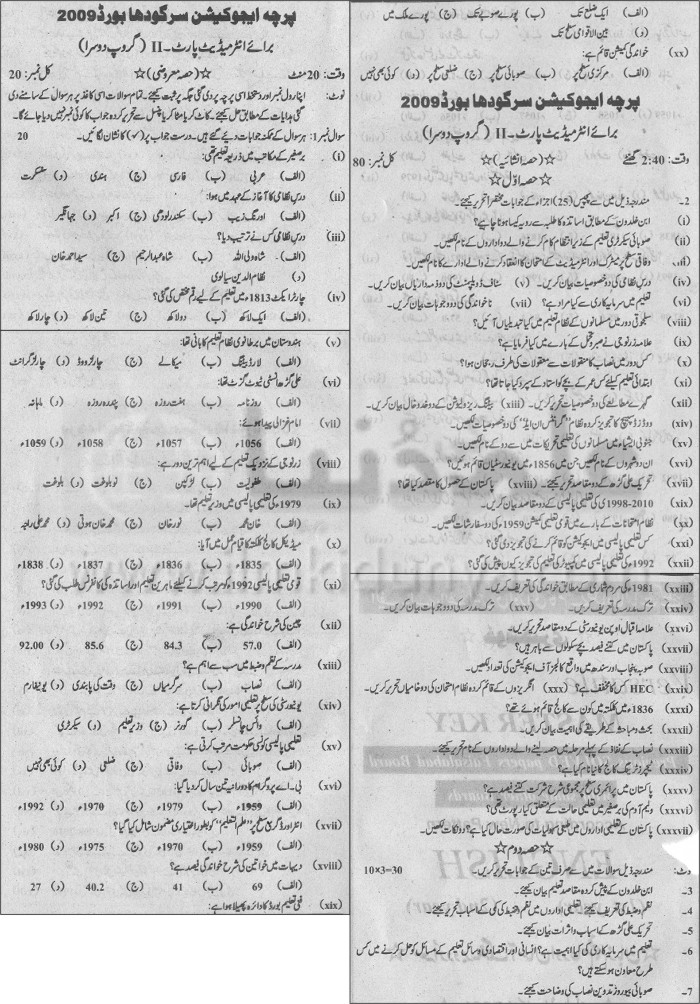 پرچہ ایجوکیشن سرگودھا بورڈ 2009
برائے انٹرمیڈیٹ پارٹ-II (گروپ دوسرا)
وقت: 20 منٹ ☆(حصہ معروضی)☆ کل نمبر: 20
نوٹ: اپنا رول نمبر اور دستخط اسی پرچہ پر دی گئی جگہ پر ثبت کیجئے۔ تمام سوالات اسی کاغذ پر ہر سوال کے سامنے دی
گئی ہدایات کے مطابق حل کیجئے۔ کاٹ کر یا مٹا کر یا پنسل سے تحریر کردہ جواب کا کوئی نمبر نہیں دیا جائے گا۔
سوال نمبر 1: ہر سوال کے ممکنہ جوابات دیئے گئے ہیں۔ درست جواب پر (✓) کا نشان لگائیں۔ 20
(i) برصغیر کے مکاتب میں ذریعہ تعلیم تھی:
(الف) عربی (ب) فارسی (ج) ہندی (د) سنسکرت
(ii) درس نظامی کا آغاز کے عہد میں ہوا:
(الف) اورنگ زیب (ب) سکندر لودھی (ج) اکبر (د) جہانگیر
(iii) درس نظامی کس نے ترتیب دیا؟
(الف) شاہ ولی اللہ (ب) شاہ عبدالرحیم (ج) سید احمد خان
(د) نظام الدین سہالوی
(iv) چارٹر ایکٹ 1813ء میں تعلیم کے لیے رقم مختص کی گئی؟
(الف) ایک لاکھ (ب) دو لاکھ (ج) تین لاکھ (د) چار لاکھ
(v) ہندوستان میں برطانوی نظام تعلیم کا بانی تھا:
(الف) لارڈ بیٹنگ (ب) میکالے (ج) چارلز ووڈ (د) چارلز گرانٹ
(vi) علی گڑھ انسٹی ٹیوٹ گزٹ تھا:
(الف) روزنامہ (ب) ہفت روزہ (ج) پندرہ روزہ (د) ماہانہ
(vii) امام غزالی پیدا ہوئے:
(الف) 1056ء (ب) 1057ء (ج) 1058ء (د) 1059ء
(viii) زرنوجی کے نزدیک تعلیم کے لیے اہم ترین دور ہے:
(الف) طفولیت (ب) لڑکپن (ج) نوبلوغت (د) بلوغت
(ix) 1979ء کی تعلیمی پالیسی میں وزیر تعلیم تھا:
(الف) خان محمد (ب) نور خان (ج) محمد خان ہوتی (د) محمد علی راجہ
(x) میڈیکل کالج کلکتہ کا قیام عمل میں آیا:
(الف) 1835ء (ب) 1836ء (ج) 1837ء (د) 1838ء
(xi) قومی تعلیمی پالیسی 1992ء کو مرتب کرنے کیلئے ماہرین تعلیم اور اساتذہ کی کانفرنس طلب کی گئی؟
(الف) 1990ء (ب) 1991ء (ج) 1992ء (د) 1993ء
(xii) چین کی شرح خواندگی ہے:
(الف) 57.0 (ب) 84.3 (ج) 85.6 (د) 92.00
(xiii) مدرسہ کے نظم و ضبط میں سب سے اہم ہے؟
(الف) نصاب (ب) سرگرمیاں (ج) وقت کی پابندی (د) یونیفارم
(xiv) یونیورسٹی کی سطح پر تعلیمی امور کی نگرانی کرتا ہے:
(الف) وائس چانسلر (ب) گورنر (ج) وزیر تعلیم (د) سیکرٹری
(xv) تعلیمی پالیسی کونسی حکومت مرتب کرتی ہے:
(الف) صوبائی (ب) وفاقی (ج) ضلعی (د) کوئی بھی نہیں
(xvi) بی۔اے پروگرام کا دورانیہ تین سال کر دیا گیا:
(الف) 1959ء (ب) 1979ء (ج) 1970ء (د) 1992ء
(xvii) انٹر اور ڈگری سطح پر "علم التعلیم" کو بطور اختیاری مضمون شامل کیا گیا؟
(الف) 1959ء (ب) 1970ء (ج) 1975ء (د) 1980ء
(xviii) دیہات میں خواتین کی شرح خواندگی فیصد ہے؟
(الف) 69 (ب) 41 (ج) 40.2 (د) 27
(xix) فنی تعلیم بورڈ کا دائرہ پھیلا ہوا ہے:
(الف) ایک ضلع تک (ب) پورے صوبے تک (ج) پورے ملک میں
(د) بین الاقوامی سطح تک
(xx) خواندگی کمیشن قائم ہے:
(الف) مرکزی سطح پر (ب) صوبائی سطح پر (ج) ضلعی سطح پر (د) کوئی بھی نہیں
پرچہ ایجوکیشن سرگودھا بورڈ 2009
برائے انٹرمیڈیٹ پارٹ-II (گروپ دوسرا)
وقت: 2:40 گھنٹے ☆(حصہ انشائیہ)☆ کل نمبر: 80
☆حصہ اوّل☆
2- مندرجہ ذیل میں سے پچیس (25) اجزاء کے جوابات مختصراً تحریر کیجئے۔
(i) ابن خلدون کے مطابق اساتذہ کا طلبہ سے رویہ کیسا ہونا چاہیے؟
(ii) صوبائی سیکرٹری تعلیم کے زیر انتظام کام کرنے والے دو اداروں کے نام لکھیں۔
(iii) وفاقی سطح پر میٹرک اور انٹرمیڈیٹ کے امتحان کا انعقاد کرنے والے ادارے کا نام لکھیں۔
(iv) درس نظامی کی دو خصوصیات بیان کریں۔ (v) سٹاف ڈویلپمنٹ کی دو ذمہ داریاں بیان کریں۔
(vi) تعلیم میں سرمایہ کاری سے کیا مراد ہے؟ (vii) ناخواندگی کی دو وجوہات بیان کریں۔
(viii) سلجوقی دور میں مسلمانوں کے نظام تعلیم میں کیا تبدیلیاں آئیں؟
(ix) علامہ زرنوجی نے صبر و تحمل کے بارے میں کیا فرمایا ہے؟
(x) کس دور میں نصاب کا منقولات سے معقولات کی طرف رجحان ہوا؟
(xi) ابتدائی تعلیم کیلئے کس عمر کے بچے کو استاد کے سپرد کیا جاتا تھا؟
(xii) گہرے مطالعے کی دو خصوصیات تحریر کریں۔ (xiii) بیٹنگ ریزولیوشن کے دو خدوخال بیان کریں۔
(xiv) ووڈ ڈسپیچ کا تجویز کردہ نظام "گرانٹس ان ایڈ" کی دو خصوصیات لکھیں۔
(xv) جنوبی ایشیاء میں مسلمانوں کی تعلیمی تحریکات میں سے دو کے نام لکھیں۔
(xvi) ان دو شہروں کے نام لکھیں جن میں 1856ء میں یونیورسٹیاں قائم ہوئیں؟
(xvii) تحریک علی گڑھ کے دو مقاصد تحریر کیجئے۔ (xviii) پاکستان کے حصول کا مقصد کیا تھا؟
(xix) 1998-2010 کی تعلیمی پالیسی کے دو مقاصد بیان کریں۔
(xx) نظام امتحانات کے بارے میں قومی تعلیمی کمیشن 1959ء کی دو سفارشات لکھیں۔
(xxi) کس تعلیمی پالیسی میں ایجوکیشن کو قائم کرنے کی تجویز دی گئی؟
(xxii) 1992ء کی تعلیمی پالیسی میں کمپیوٹر کی تعلیم کی تجویز کیوں پیش کی گئی؟
(xxiii) 1981ء کی مردم شماری کے مطابق خواندگی کی تعریف کریں۔
(xxiv) ترک مدرسہ کی تعریف کریں۔ (xxv) ترک مدرسہ کی دو وجوہات بیان کریں۔
(xxvi) علامہ اقبال اوپن یونیورسٹی کے دو مقاصد تحریر کریں۔
(xxvii) پاکستان میں کتنے فیصد بچے سکولوں سے باہر ہیں؟
(xxviii) صوبہ پنجاب اور سندھ میں واقع کالجز آف ایجوکیشن کی تعداد لکھیں۔
(xxix) HEC کس کا مخفف ہے؟ (xxx) انگریزوں کے قائم کردہ نظام امتحان کی دو خامیاں تحریر کریں۔
(xxxi) 1836ء میں کلکتہ میں کون سے کالج قائم ہوئے تھے؟
(xxxii) بحث و مباحثہ کے طریقے کی اہمیت بیان کریں۔
(xxxiii) نصاب کے نفاذ کے پہلے مرحلہ میں حصہ لینے والے دو اداروں کے نام تحریر کیجئے۔
(xxxiv) ٹیچرز ٹریننگ کالج کا نیا نام کیا ہے؟
(xxxv) پاکستان میں پرائمری سطح پر مجموعی شرح شرکت کتنے فیصد ہے؟
(xxxvi) ولیم آدم کی برصغیر میں تعلیمی حالت کے متعلق کیا رپورٹ تھی؟
(xxxvii) پاکستان کے تعلیمی اداروں میں طبعی سہولیات کی صورت حال کیا ہے؟ دو نکات لکھیں۔
☆حصہ دوم☆
نوٹ: مندرجہ ذیل سوالات میں سے صرف تین کے جوابات تحریر کریں۔ 10×3=30
3- ابن خلدون کے پیش کردہ مقاصد تعلیم بیان کیجئے۔
4- نظم و ضبط کی تعریف کیجئے۔ تعلیمی اداروں میں نظم و ضبط کی کمی کے اسباب تحریر کیجئے۔
5- تحریک علی گڑھ کے اسباب و اثرات بیان کیجئے۔
6- تعلیم میں سرمایہ کاری کی کیا اہمیت ہے؟ انسانی اور اقتصادی وسائل تعلیم کے مسائل کو حل کرنے میں کس
طرح معاون ہو سکتے ہیں؟
7- صوبائی بیورو نے تدوین نصاب کی وضاحت کیجئے۔